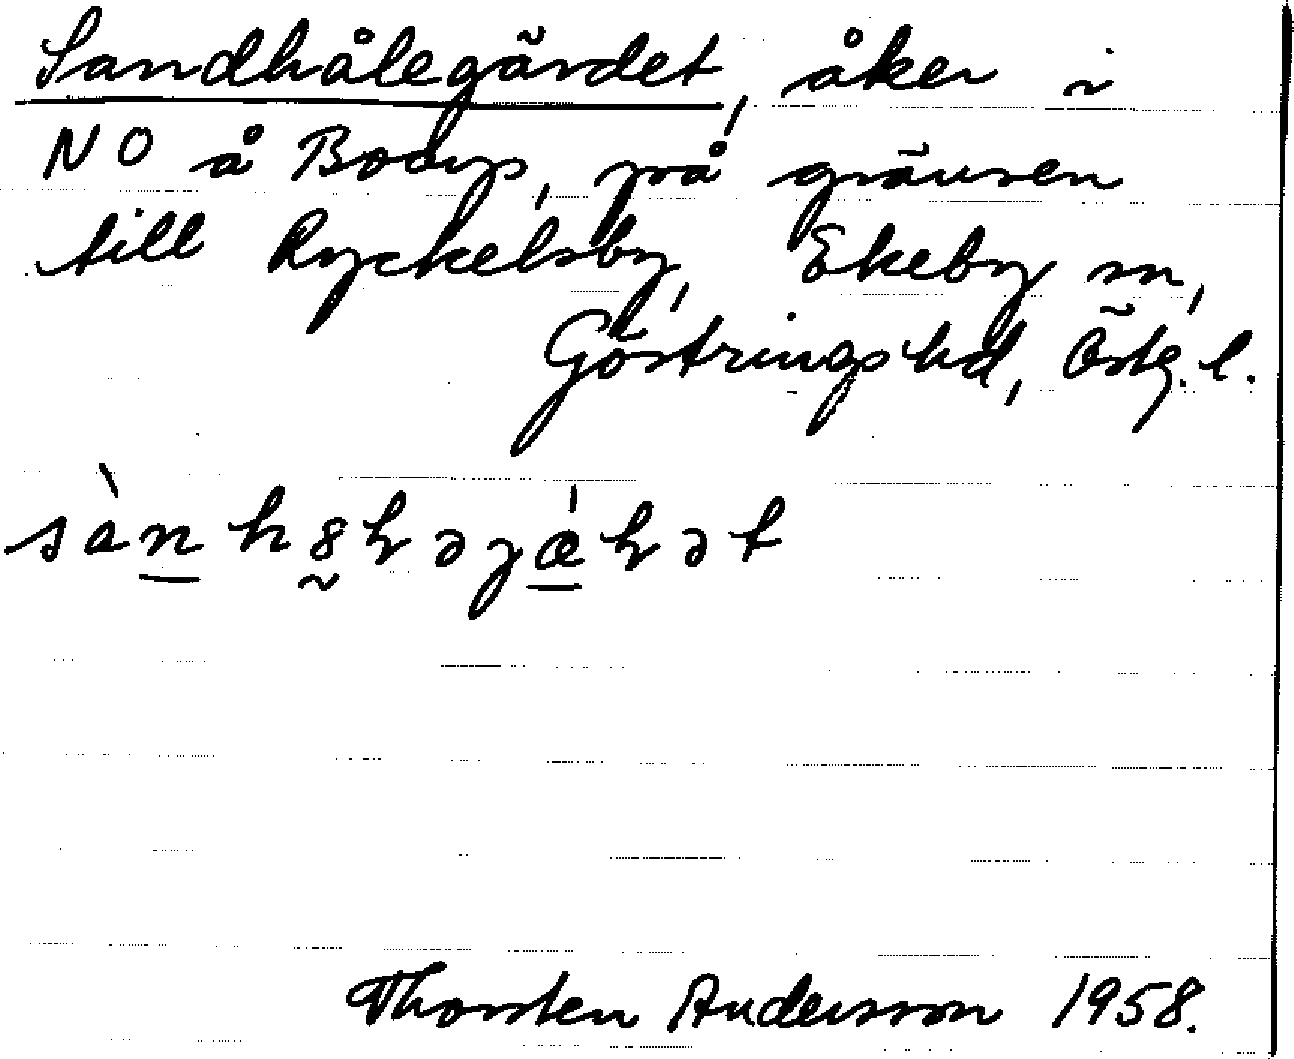 Sandhålegärdet, åker i
NO å Bodys, på gränsen
till Ryckelsby, Ekeby sn,
Göstrings hd, Östg. l.
Thorsten Andersson 1958.